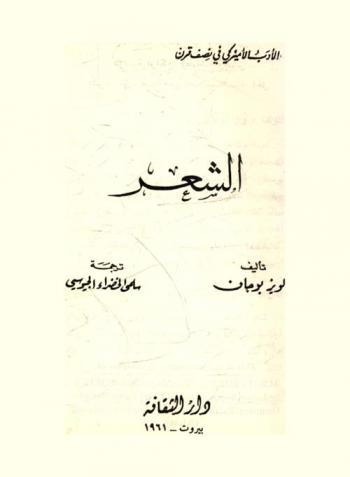 الأدب الأميركي في نصف قرن
الشعر
تأليف
لويز بوجان
ترجمة
سلمى الخضراء الجيوسي
دار الثقافة
بيروت - ١٩٦١